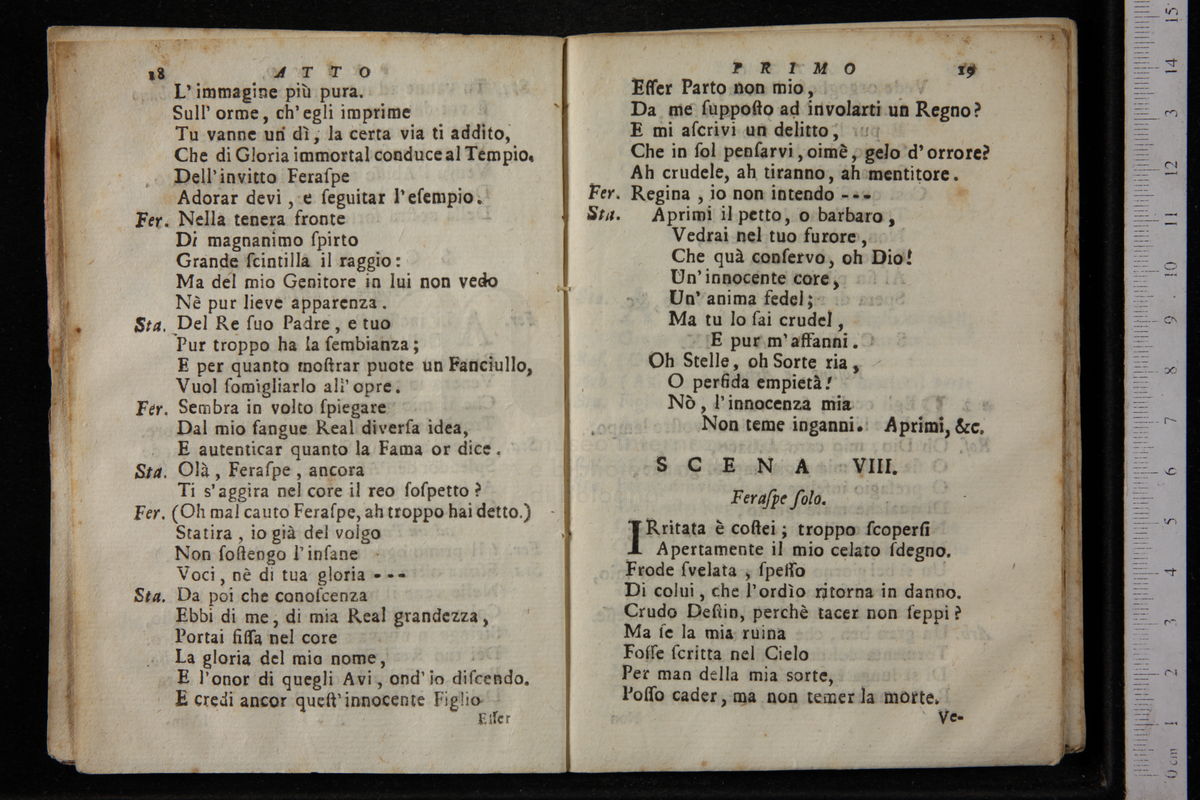 18 ATTO
L' immagine più pura.
Sull' orme, ch' egli imprime
Tu vanne un dì, la certa via ti addito,
Che di Gloria immortal conduce al Tempio.
Dell' invitto Feraſpe
Adorar devi, e ſeguitar l' eſempio.
Fer. Nella tenera fronte
Di magnanimo ſpirto
Grande ſcintilla il raggio:
Ma del mio Genitore in lui non vedo
Nè pur lieve apparenza.
Sta. Del Re ſuo Padre, e tuo
Pur troppo ha la ſembianza;
E per quanto moſtrar puote un Fanciullo,
Vuol ſomigliarlo all' opre.
Fer. Sembra in volto ſpiegare
Dal mio ſangue Real diverſa idea,
E autenticar quanto la Fama or dice.
Sta. Olà, Feraſpe, ancora
Ti s' aggira nel core il reo ſoſpetto?
Fer. (Oh mal cauto Feraſpe, ah troppo hai detto.)
Statira, io già del volgo
Non ſoſtengo l' inſane
Voci, nè di tua gloria ---
Sta. Da poi che conoſcenza
Ebbi di me, di mia Real grandezza,
Portai fiſſa nel core
La gloria del mio nome,
E l' onor di quegli Avi, ond' io diſcendo.
E credi ancor queſt' innocente Figlio
Eſſer
PRIMO 19
Eſſer Parto non mio,
Da me ſuppoſto ad involarti un Regno?
E mi aſcrivi un delitto,
Che in ſol penſarvi, oimè, gelo d' orrore?
Ah crudele, ah tiranno, ah mentitore.
Fer. Regina, io non intendo ---
Sta. Aprimi il petto, o barbaro,
Vedrai nel tuo furore,
Che quà conſervo, oh Dio!
Un' innocente core,
Un' anima fedel;
Ma tu lo ſai crudel,
E pur m' affanni.
Oh Stelle, oh Sorte ria,
O perfida empietà!
Nò, l' innocenza mia
Non teme inganni. Aprimi, &c.
SCENA VIII.
Feraſpe ſolo.
IRritata è coſtei; troppo ſcoperſi
Apertamente il mio celato ſdegno.
Frode ſvelata, ſpeſſo
Di colui, che l' ordìo ritorna in danno.
Crudo Deſtin, perchè tacer non ſeppi?
Ma ſe la mia ruina
Foſſe ſcritta nel Cielo
Per man della mia sorte,
Poſſo cader, ma non temer la morte.
Ve-
0 cm 1 2 3 4 5 6 7 8 9 10 11 12 13 14 15